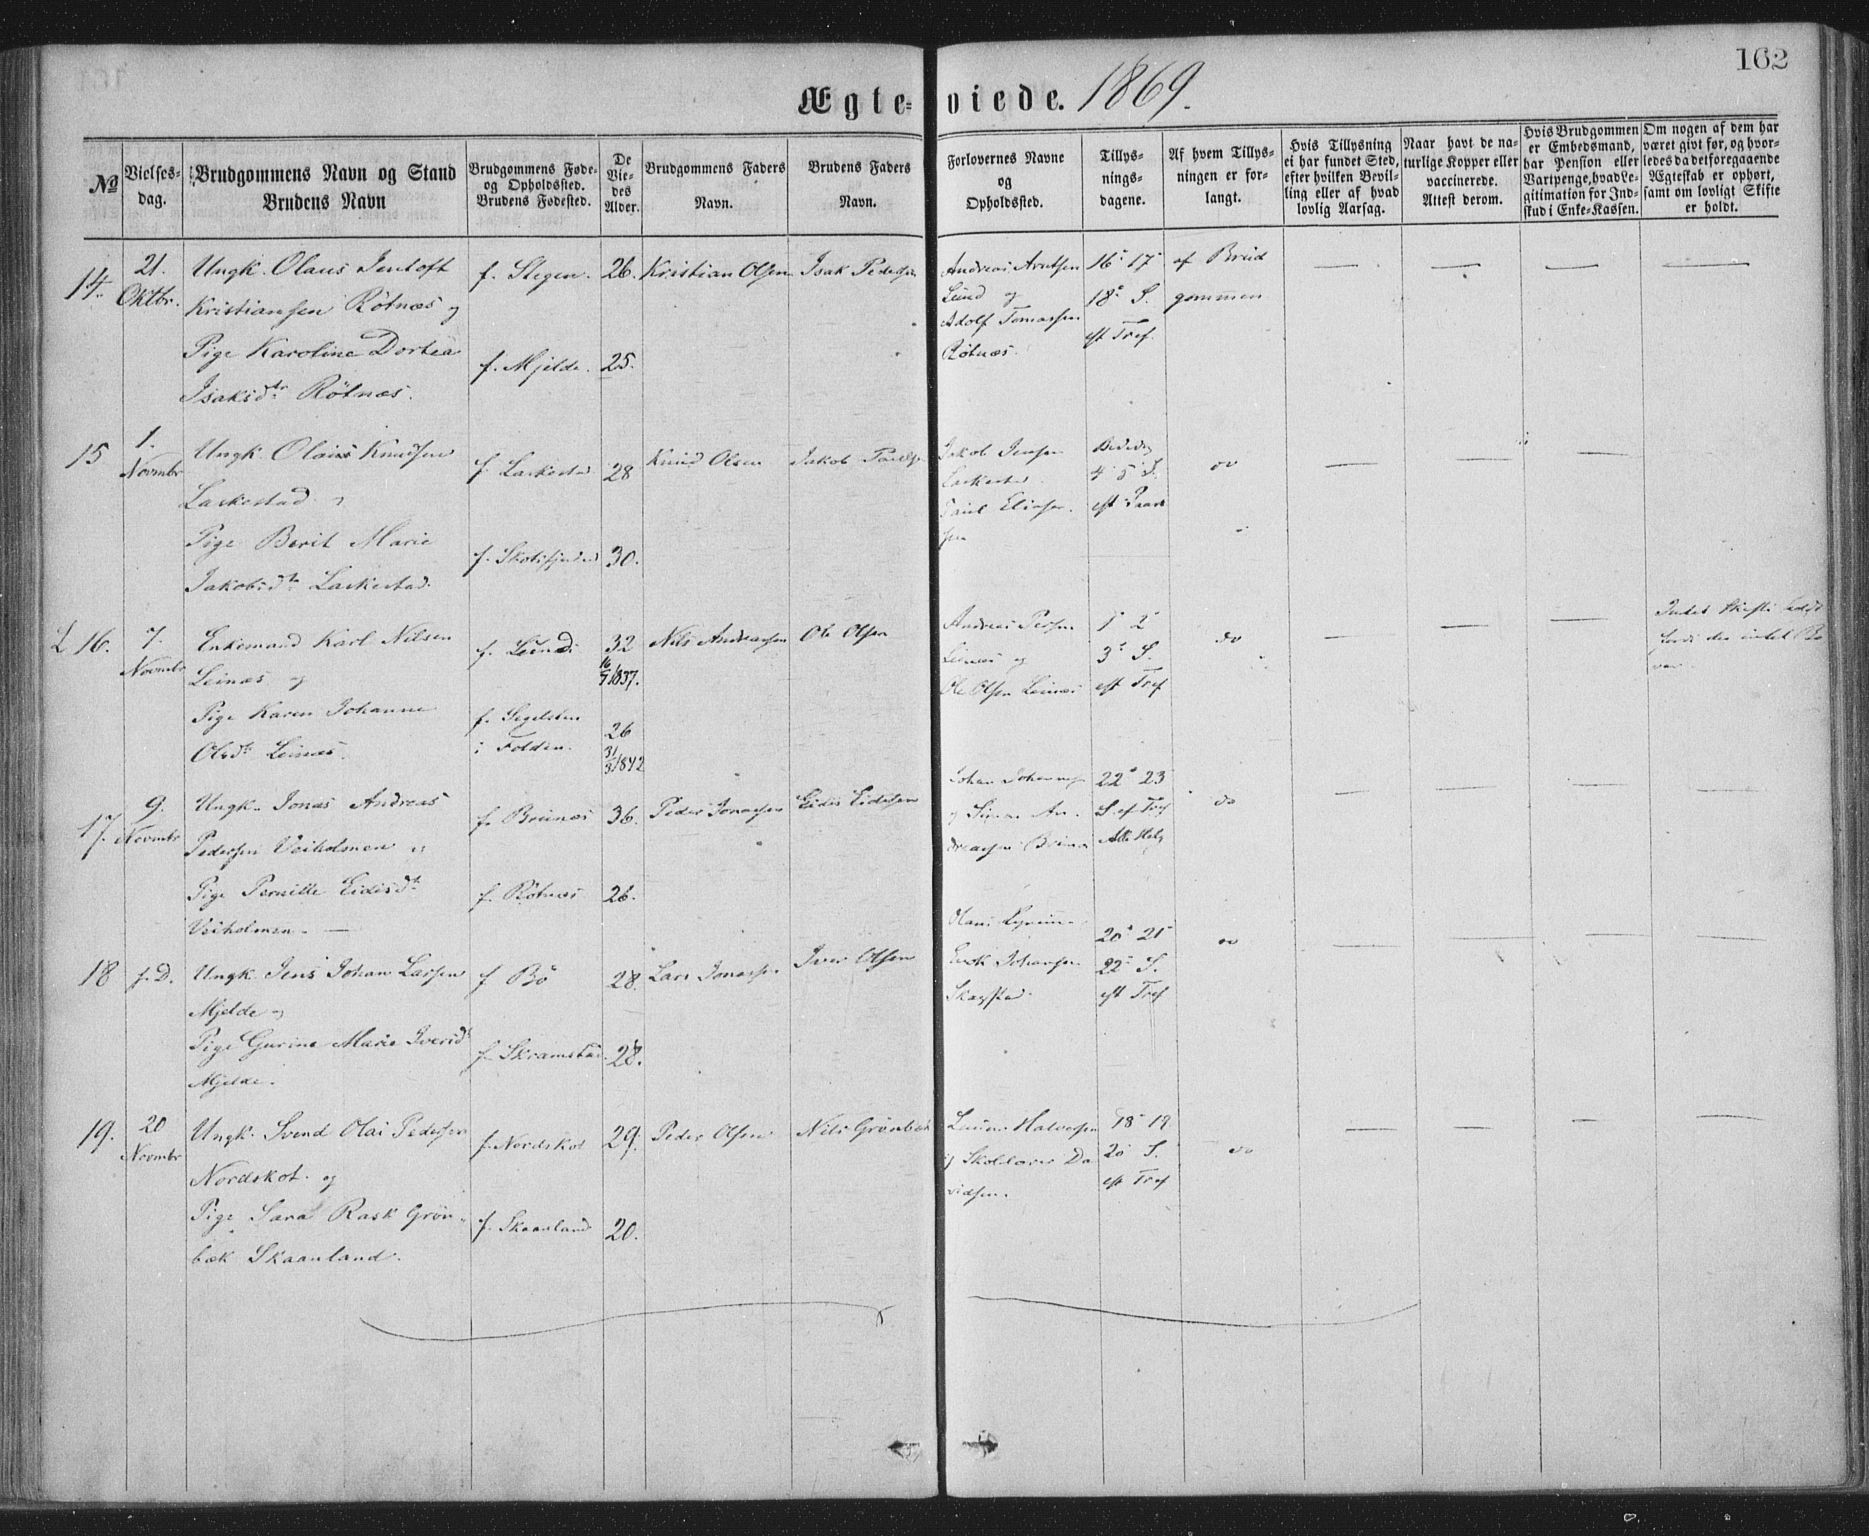 162
Ægte- viede. 1869.
No
Vielses-
dag.
Brudgommens Navn og Stand
Brudens Navn
Brudgommens Føde-
og Opholdssted.
Brudens Fødested.
De
Vie-
des
Alder.
Brudgommens Faders
Navn.
Brudens Faders
Navn.
Forlovernes Navne
og
Opholdssted.
Tillys-
nings-
dagene.
Af hvem Tillys-
ningen er for-
langt.
Hvis Tillysning
ei har fundet Sted,
efter hvilken Bevil-
ling eller af hvad
lovlig Aarsag.
Naar havt de na-
turlige Kopper eller
vaccinerede.
Attest derom.
Hvis Brudgommen
er Embedsmand,
har Pension eller
Vartpenge, hvad Le-
gitimation for Ind-
skud i Enke-Kassen.
Om nogen af dem har
været givt før, og hvor-
ledes da det foregaaende
Ægteskab er ophørt,
samt om lovligt Skifte
er holdt.
14.
21.
Oktbr.
Ungk. Olaus Jentoft
Kristiansen Røtnæs og
Pige Karoline Dortea
Isaksdtr Røtnæs.
f. Stegen.
f. Mjelde.
26.
25.
Kristian Olsen
Isak Pedersen
Andreas Arntsen
Lund og
Adolf Tomassen
Røtnæs.
16de 17
18de S.
eft Tref.
af Brud
gommen
15
1.
Novmbr
Ungk. Olaus Knudsen
Laskestad
Pige Berit Marie
Jakobsdtr Laskestad.
f. Laskestad
f. Skotsfjorden
28
30.
Knud Olsen
Jakob Paulse
Jakob Jensen
Laskestad.
Paul Eliasen.
4 5 S.
do
16.
7.
Novmbr
Enkemand Karl Nilsen
Leinæs og
Pige Karen Johanne
Olsdtr Leinæs.
f. Leines
f. Segelsten
i Folden.
32
16/5 1837.
26
31/3 1842
Nils Andreassen
Ole Olsen
Andreas
Leinæs og
Ole Olsen Leinæs
1 2
3 S.
eft Tref
do
Intet Skifte
fordi der intet Bo
var.
17.
9.
Novmbr
Ungk. Jonas Andreas
Pedersen Veiholmen
Pige Pernille Eidisdtr
Veiholmen.
f. Brunæs
f. Røtnæs
36.
26.
Peder Jonassen
Eidis Eidissen
Johan
og Simon An-
dreasen
22 23
S. ef Tref
Alle Helg
do
18
f. D.
Ungk. Jens Johan Larsen
Mjelde
Pige Gurine Marie Iversdt
Mjelde.
f Bö
f. Skramstad.
28.
28.
Lars Jonassen
Iver Olsen
Erik Johansen
Skagstad.
20 21
22 S.
eft Tref
do
19.
20
Novmbr
Ungk. Svend Olai Pedersen
Nordskot. og
Pige Sara Rask Grön-
bæk Skaanland.
f. Nordskot
f. Skaanland
29.
20.
Peder Olsen
Nils Grönbæk
Halvorsen
og Skolelærer Da
vidsen.
18 19
20 S.
eft Tref
do